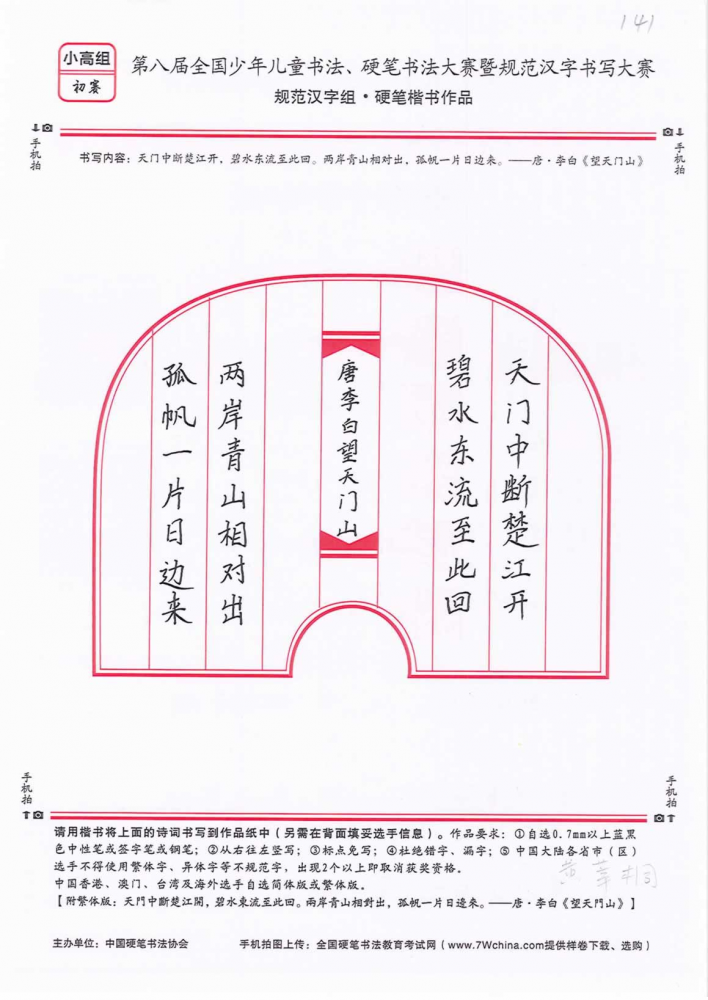 141
小高组
初赛
第八届全国少年儿童书法、硬笔书法大赛暨规范汉字书写大赛
规范汉字组·硬笔楷书作品
手机拍
手机拍
书写内容：天门中断楚江开，碧水东流至此回。两岸青山相对出，孤帆一片日边来。——唐·李白《望天门山》
天门中断楚江开
碧水东流至此回
唐李白望天门山
两岸青山相对出
孤帆一片日边来
手机拍
手机拍
请用楷书将上面的诗词书写到作品纸中（另需在背面填妥选手信息）。作品要求：①自选0.7mm以上蓝黑
色中性笔或签字笔或钢笔；②从右往左竖写；③标点免写；④杜绝错字、漏字；⑤中国大陆各省市（区）
选手不得使用繁体字、异体字等不规范字，出现2个以上即取消获奖资格。
中国香港、澳门、台湾及海外选手自选简体版或繁体版。
【附繁体版：天門中斷楚江開，碧水東流至此回。兩岸青山相對出，孤帆一片日邊來。——唐·李白《望天門山》】
主办单位：中国硬笔书法协会
手机拍图上传：全国硬笔书法教育考试网（www.7Wchina.com提供样卷下载、选购）